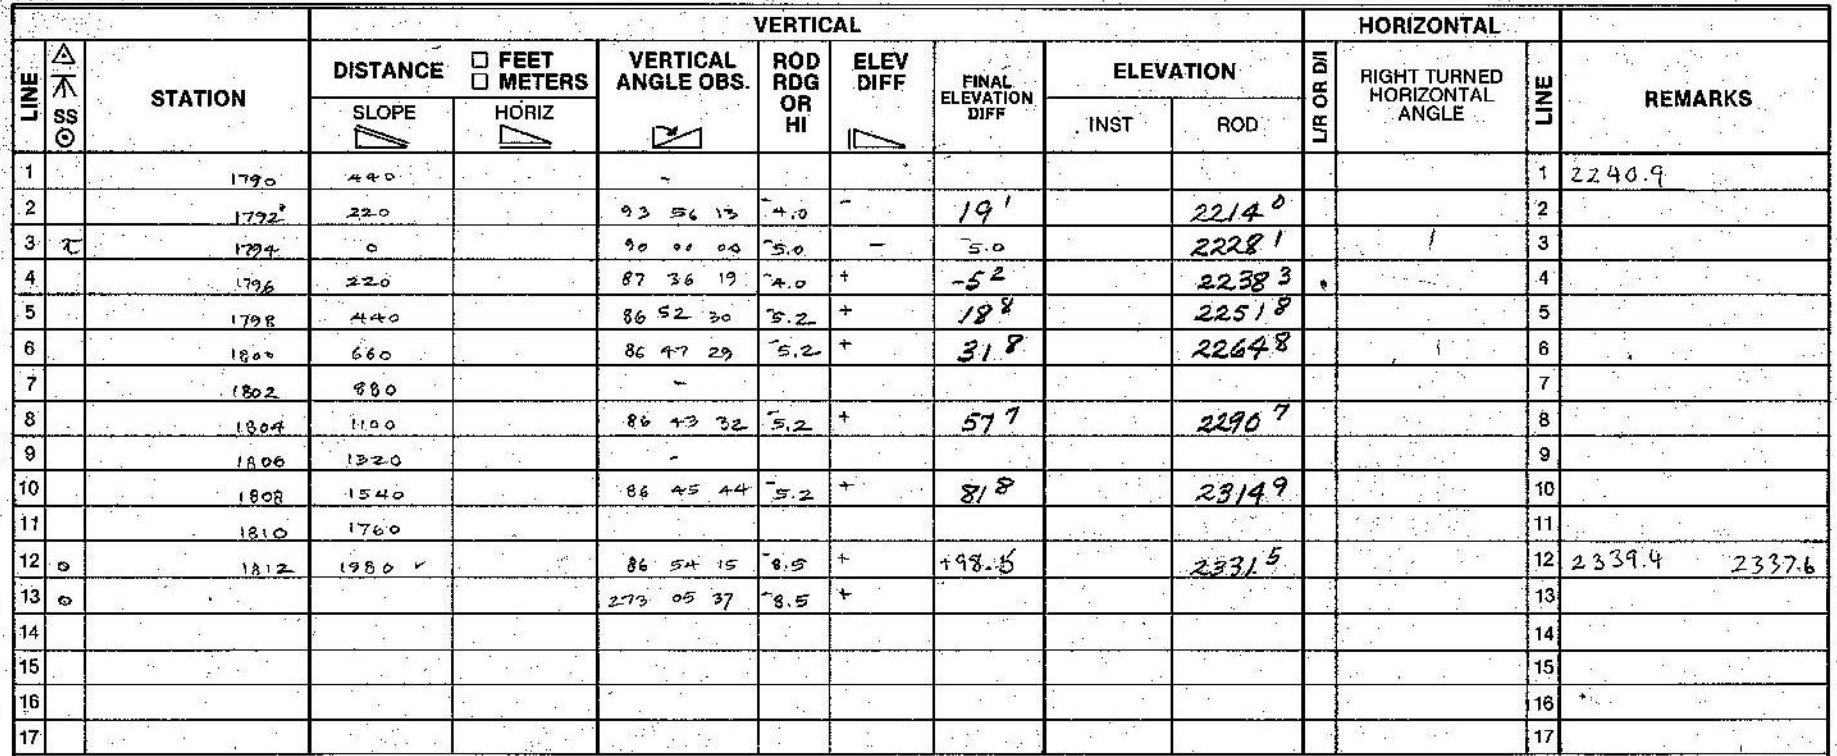 VERTICAL HORIZONTAL
LINE SS STATION DISTANCE □ FEET □ METERS SLOPE HORIZ VERTICAL ANGLE OBS. ROD RDG OR HI ELEV DIFF FINAL ELEVATION DIFF ELEVATION INST ROD L/R OR D/I RIGHT TURNED HORIZONTAL ANGLE LINE REMARKS
1 1790 440 - 1 2240.9
2 1792 220 93 56 13 -4.0 - 19 1 2214 0 2
3 1794 0 90 00 00 -5.0 - -5.0 2228 1 3
4 1796 220 87 36 19 -4.0 + -5 2 2238 3 4
5 1798 440 86 52 30 -5.2 + 18 8 2251 8 5
6 1800 660 86 47 29 -5.2 + 31 8 2264 8 6
7 1802 880 - 7
8 1804 1100 86 43 32 -5.2 + 57 7 2290 7 8
9 1806 1320 - 9
10 1808 1540 86 45 44 -5.2 + 81 8 2314 9 10
11 1810 1760 11
12 1812 1980 86 54 15 -8.5 + +98.5 2331.5 12 2339.4 2337.6
13 273 05 37 -8.5 + 13
14 14
15 15
16 16
17 17